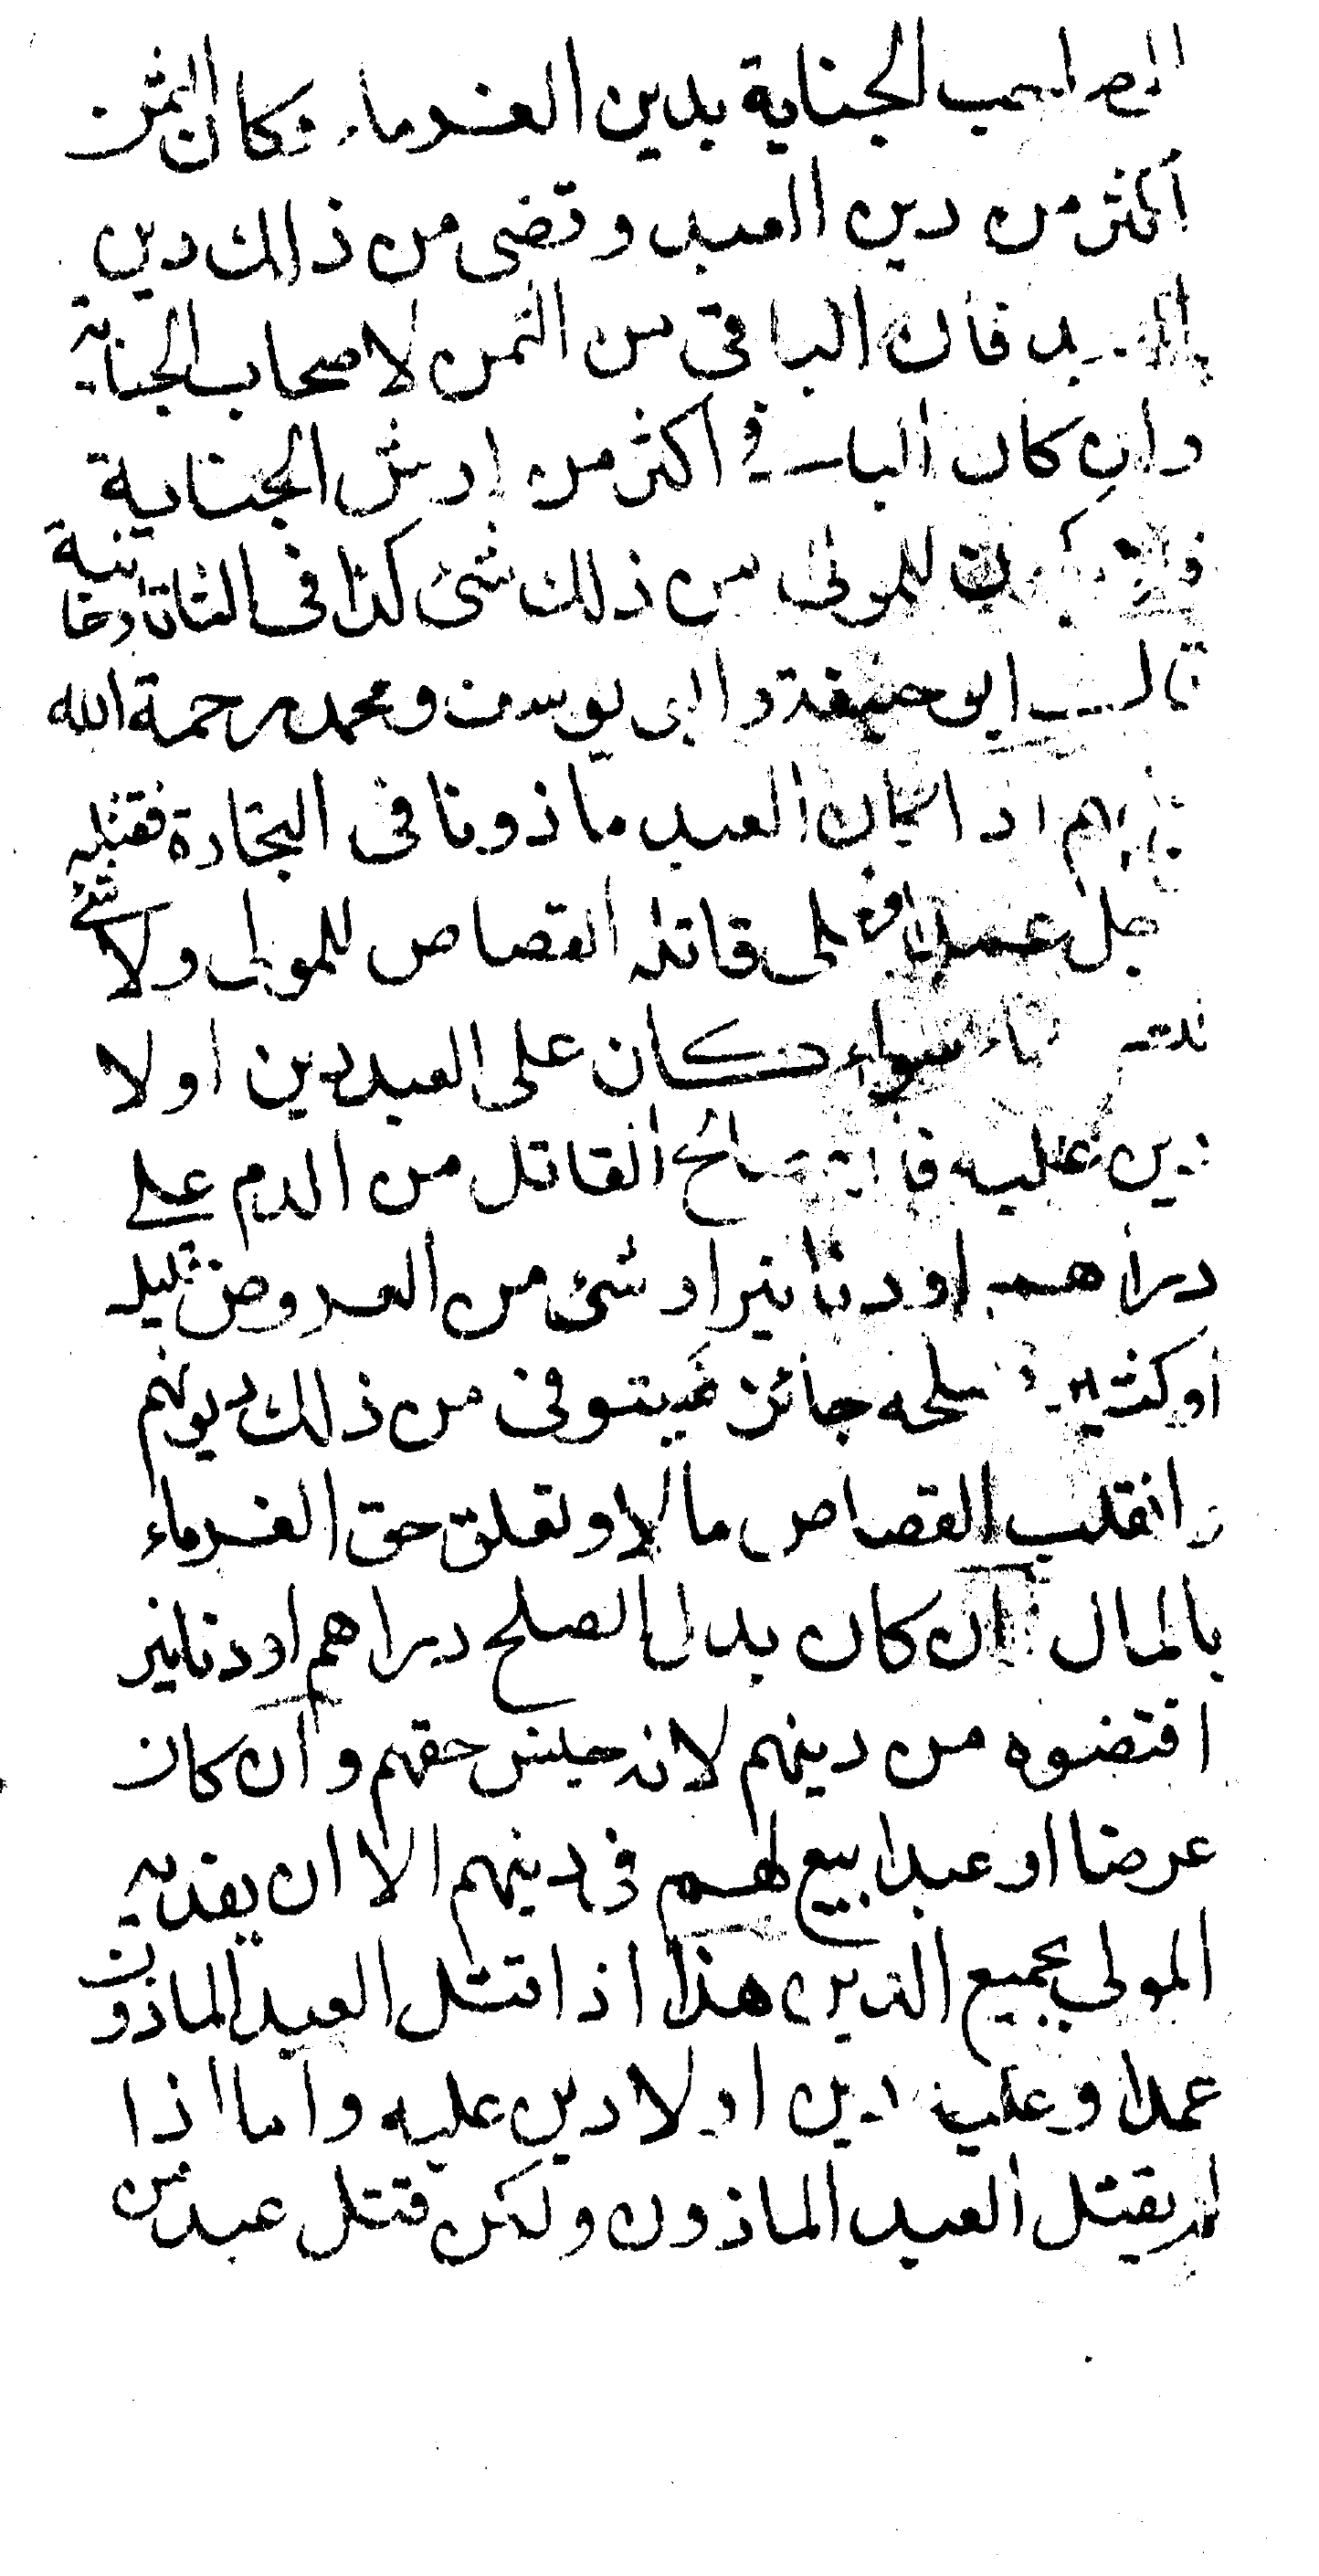 الجناية بدين الغرماء فكان الثمن
أكثر من دين العبد وقضى من ذالك دين
فان الباقى من الثمن لاصحاب الجناية
وان كان الباقي اكثر من ارش الجناية
للمولى من ذلك شئ كذا فى التاتارخانية
قال ابو حنيفة وابى يوسف ومحمد رحمة الله
اذا كان العبد ماذونا فى التجارة فقتله
عمدا على قاتله القصاص للمولى ولا شئ
سواء كان على العبد دين او لا
دين عليه القاتل من الدم على
دراهم او دنانير او شئ من العروض قليل
أو كثير جائز من ذلك ديونهم
وانقلب القصاص مالا وتعلق حق الغرماء
بالمال ان كان بدل الصلح دراهم او دنانير
اقتضوه من دينهم لانه جنس حقهم وان كان
عرضا او عبدا بيع لهم فى دينهم الا ان يفديه
المولى بجميع الدين هذا اذا قتل العبد الماذون
عمدا وعليه دين او لا دين عليه واما اذا
لم يقتل العبد الماذون ولكن قتل عبد من